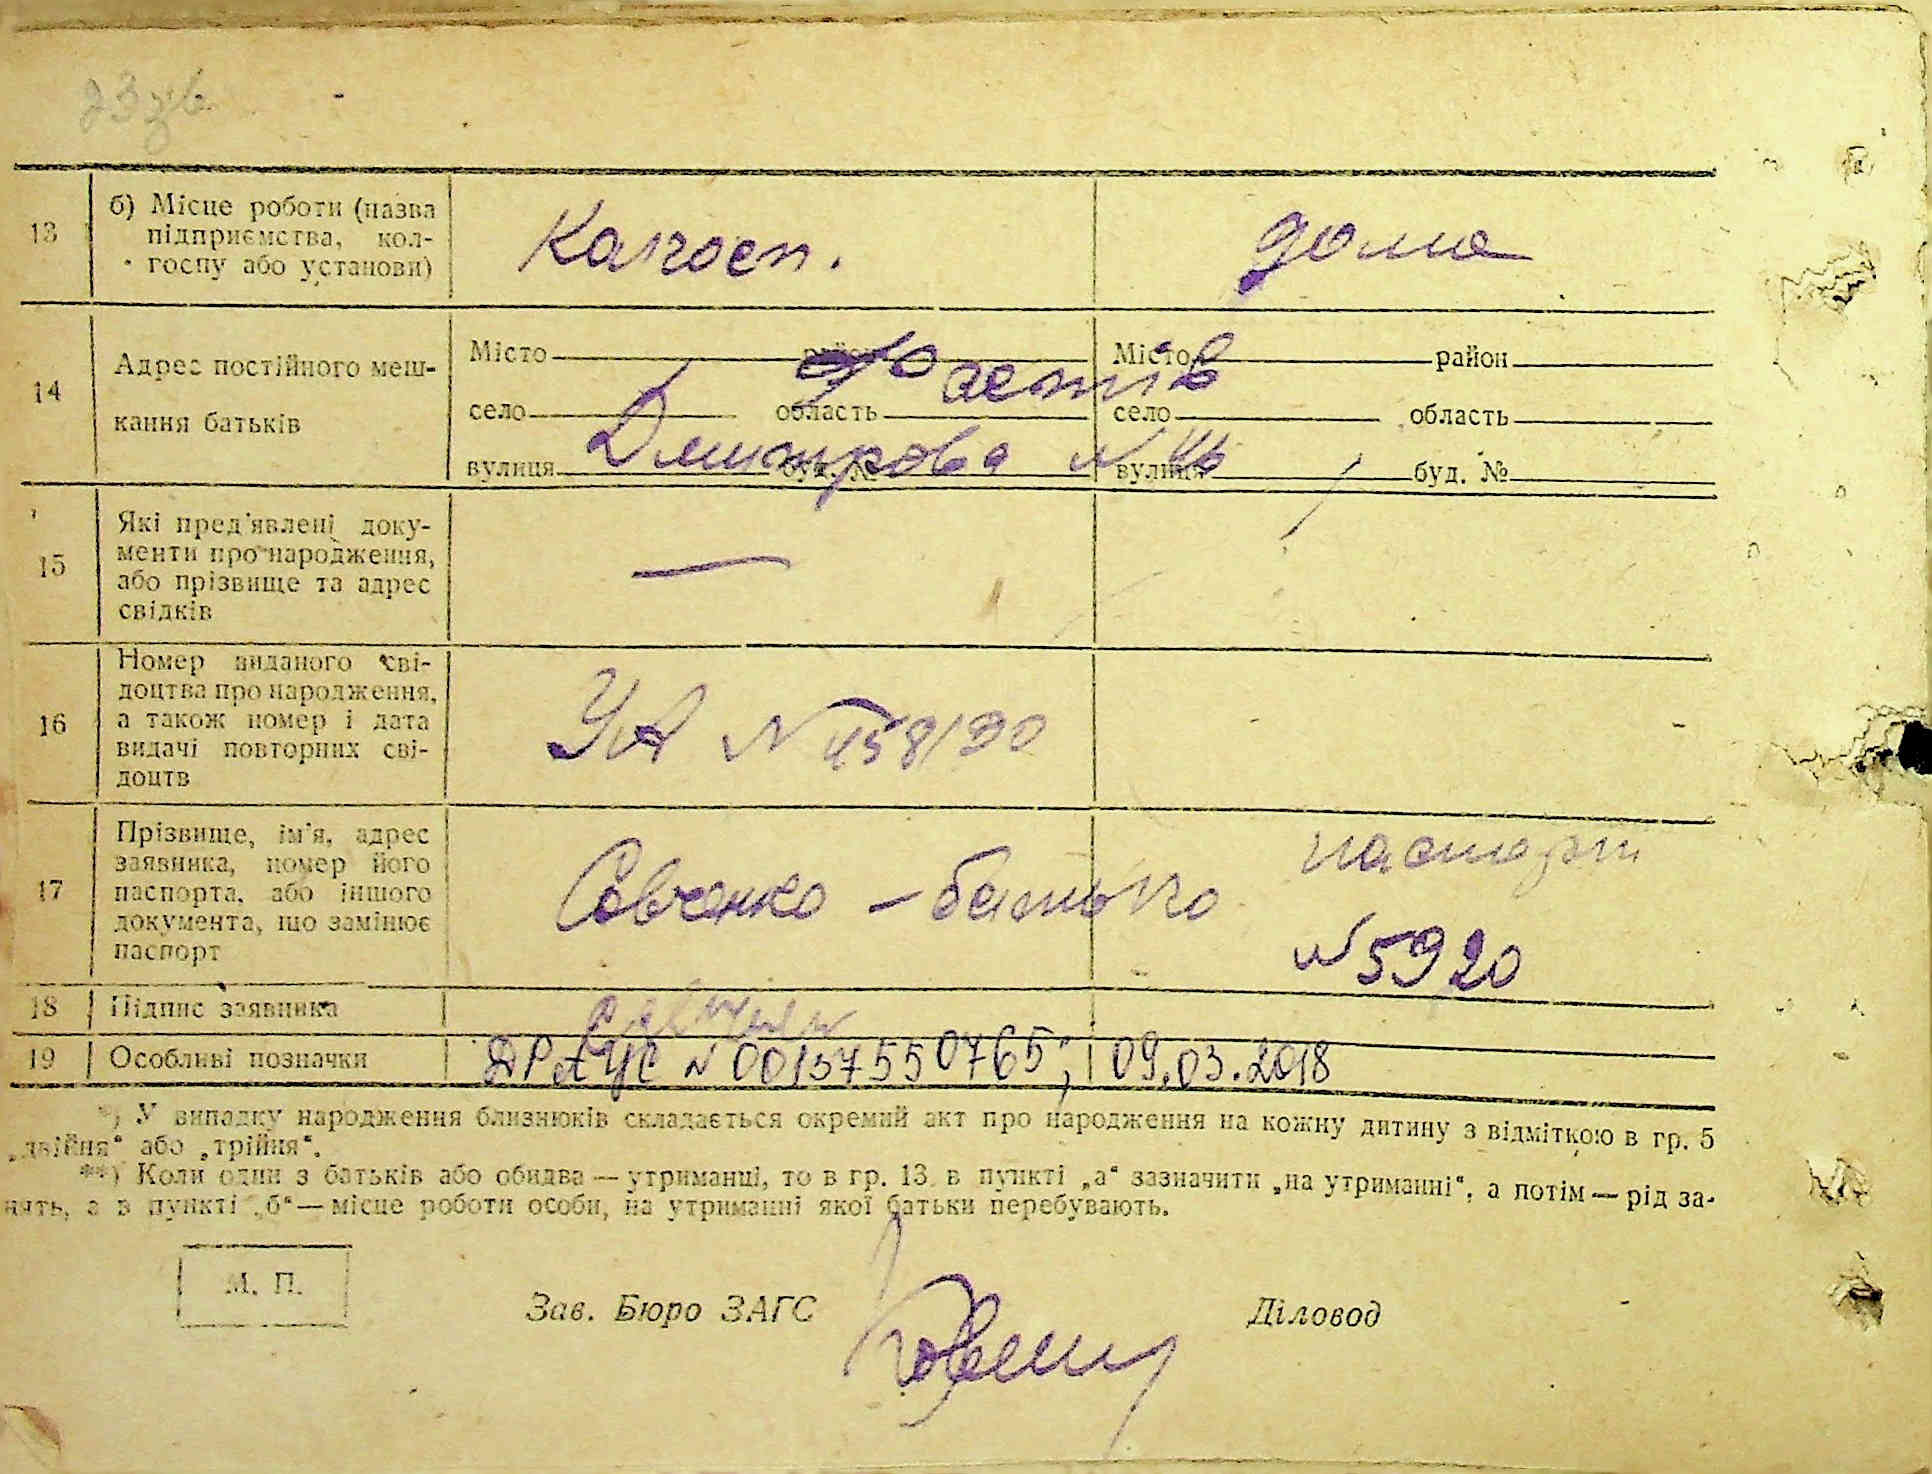 23 зв
13
б) Місце роботи (назва
підприємства, кол-
госпу або установи)
Колгосп.
дома
14
Адрес постійного меш-
кання батьків
Місто район
Місто район
Фастів
село область
село область
Дмитрова №
вулиця буд. №
вулиця буд. №
15
Які пред'явлені доку-
менти про народження,
або прізвище та адрес
свідків
—
16
Номер виданого сві-
доцтва про народження,
а також номер і дата
видачі повторних сві-
доцтв
УА № 458190
17
Прізвище, ім'я, адрес
заявника, номер його
паспорта, або іншого
документа, що замінює
паспорт
Савченко – батько
паспорт
№ 5920
18
Підпис заявника
19
Особливі позначки
ДРАЦС № 00137550765; 09.03.2018
*) У випадку народження близнюків складається окремий акт про народження на кожну дитину з відміткою в гр. 5
„двійня" або „трійня".
**) Коли один з батьків або обидва — утриманці, то в гр. 13 в пункті „а" зазначити „на утриманні", а потім — рід за-
нять, а в пункті „б" — місце роботи особи, на утриманні якої батьки перебувають.
М. П.
Зав. Бюро ЗАГС
Діловод